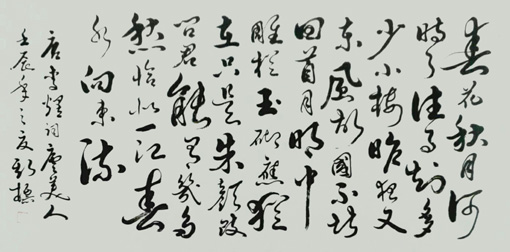 春花秋月何
時了往事知多
少小楼昨夜又
東風故國不堪
回首月明中
雕栏玉砌應猶
在只是朱顔改
问君能有幾多
愁恰似一江春
水向東流
唐李煜词虞美人
壬辰年之夏